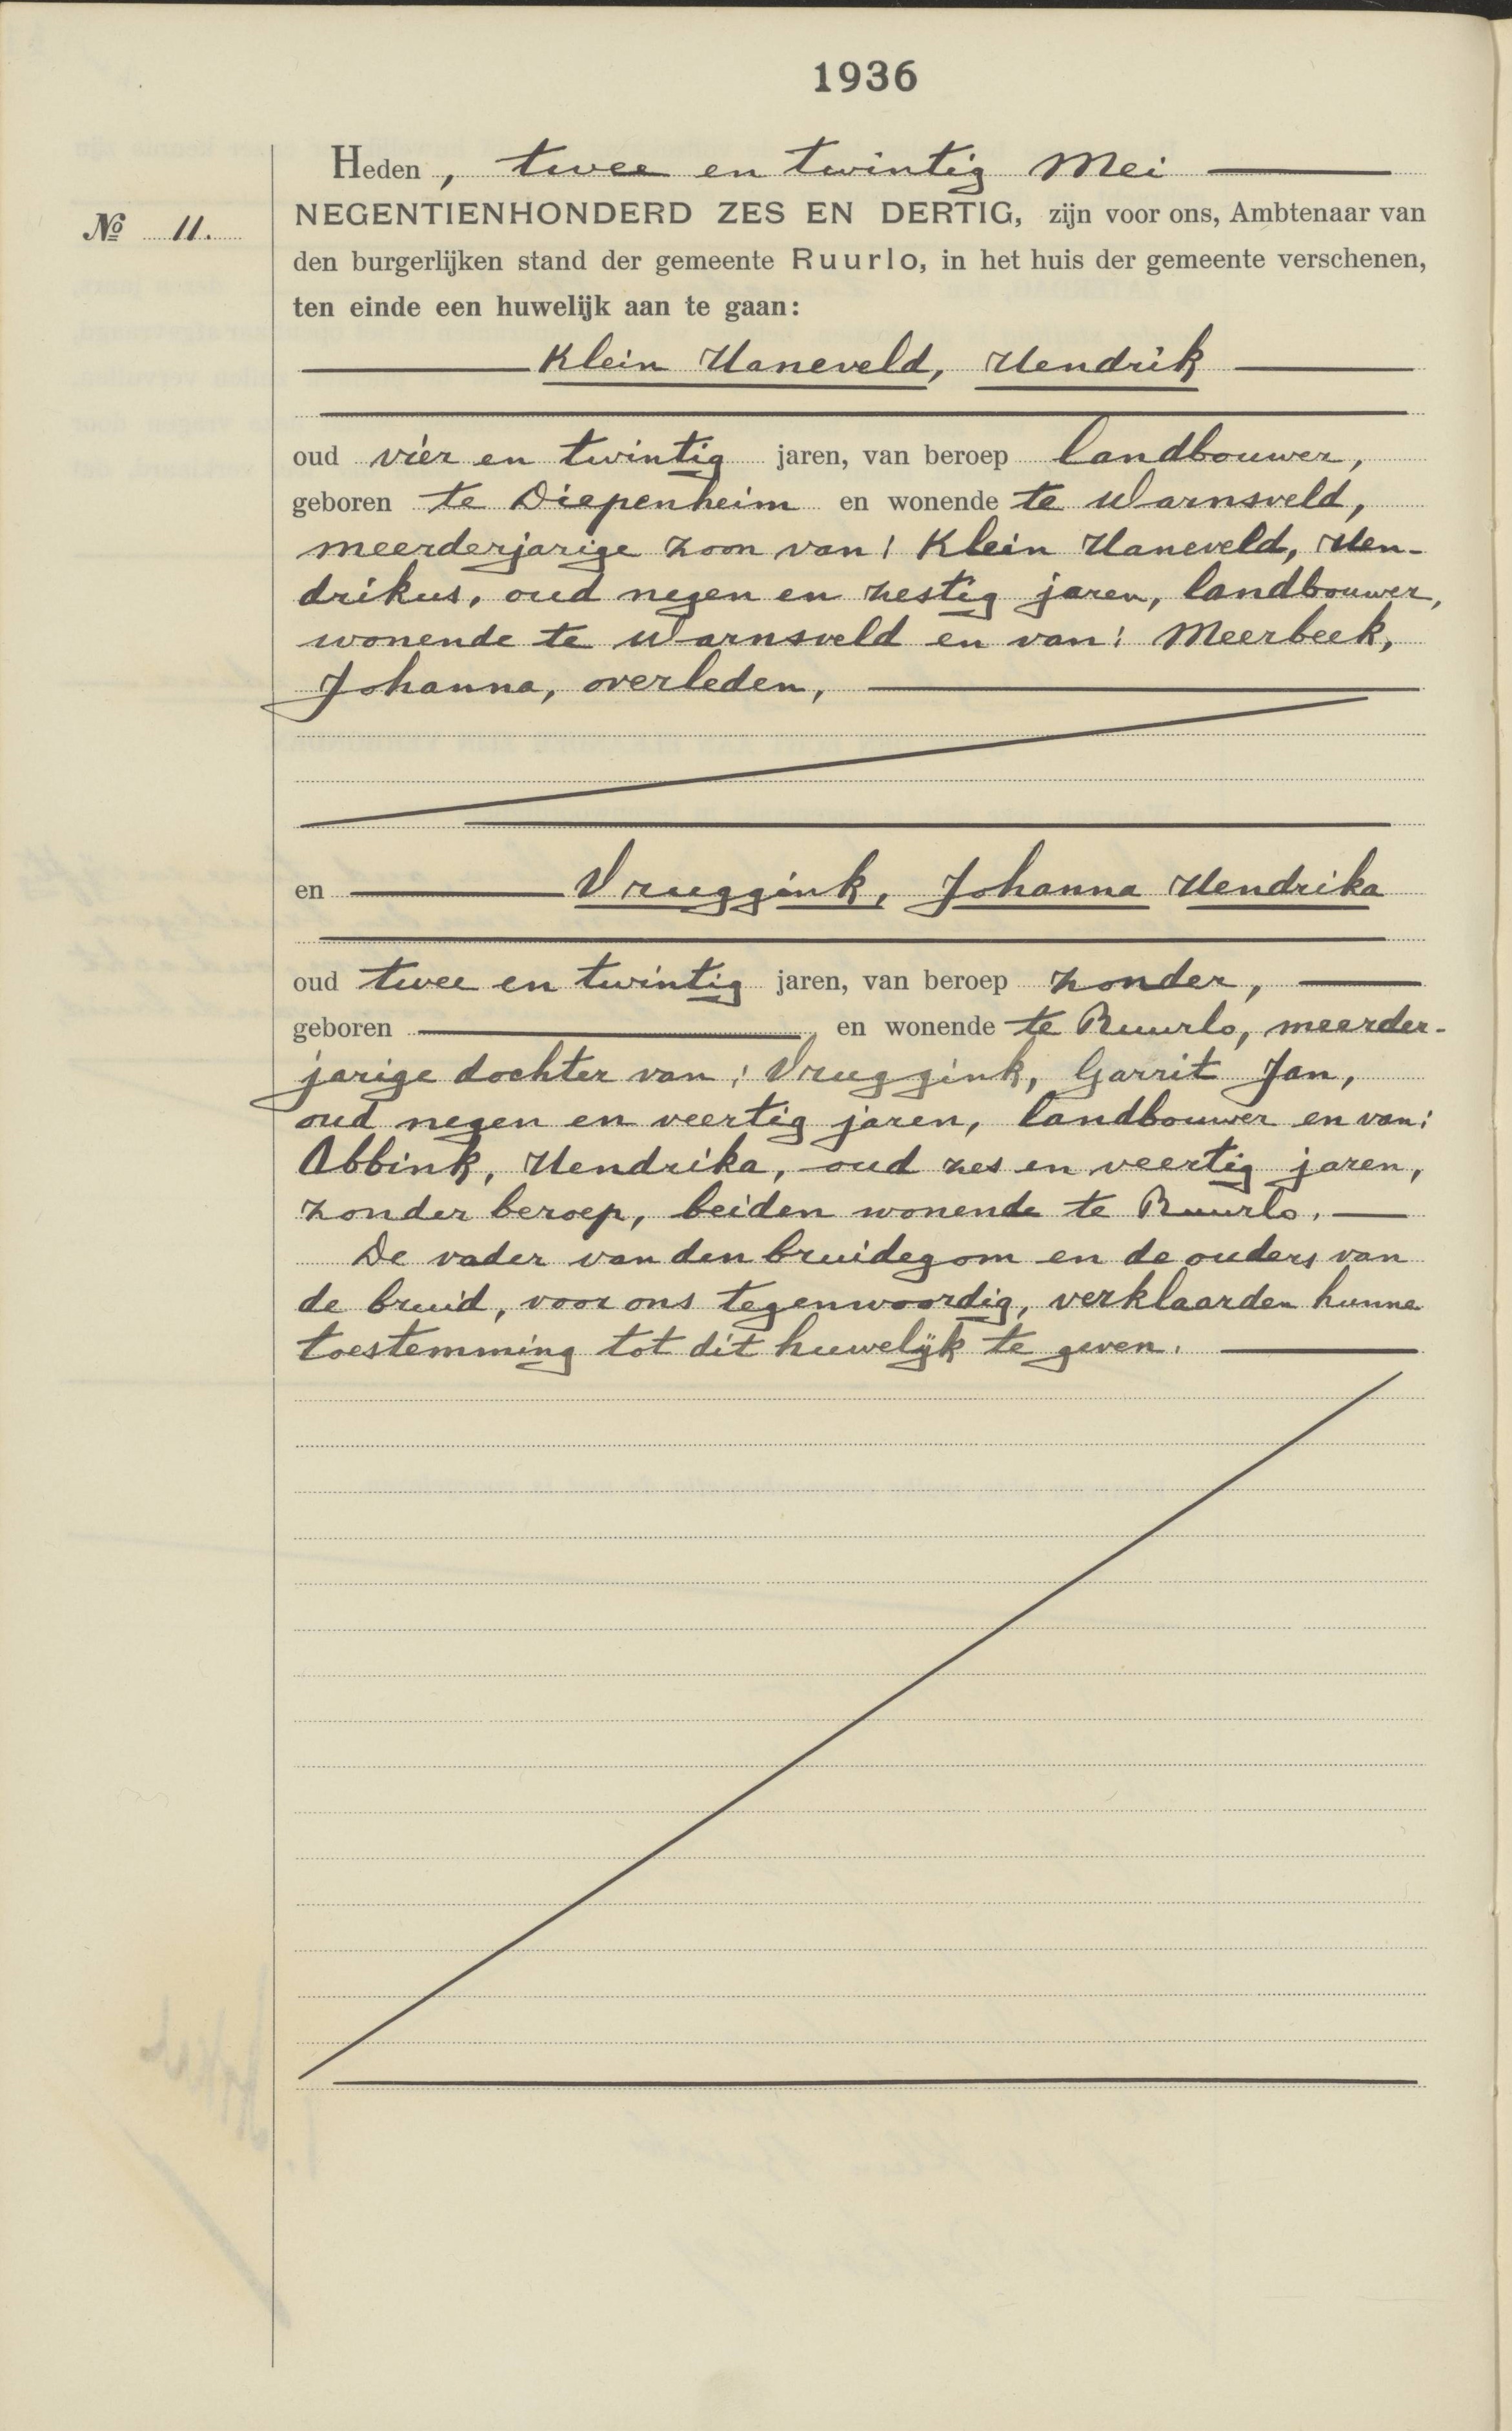 1936
Heden, twee en twintig Mei
NEGENTIENHONDERD ZES EN DERTIG, zijn voor ons, Ambtenaar van
No 11.
den burgerlijken stand der gemeente Ruurlo, in het huis der gemeente verschenen,
ten einde een huwelijk aan te gaan:
Klein Haneveld, Hendrik
oud vier en twintig jaren, van beroep landbouwer,
geboren te Diepenheim en wonende te Warnsveld,
meerderjarige zoon van: Klein Haneveld, Hen-
drikus, oud negen en zestig jaren, landbouwer,
wonende te Warnsveld en van: Meerbeek,
Johanna, overleden,
en Vruggink, Johanna Hendrika
oud twee en twintig jaren, van beroep zonder,
geboren en wonende te Ruurlo, meerder-
jarige dochter van: Vruggink, Garrit Jan,
oud negen en veertig jaren, landbouwer en van:
Abbink, Hendrika, oud zes en veertig jaren,
zonder beroep, beiden wonende te Ruurlo.
De vader van den bruidegom en de ouders van
de bruid, voor ons tegenwoordig, verklaarden hunne
toestemming tot dit huwelijk te geven.